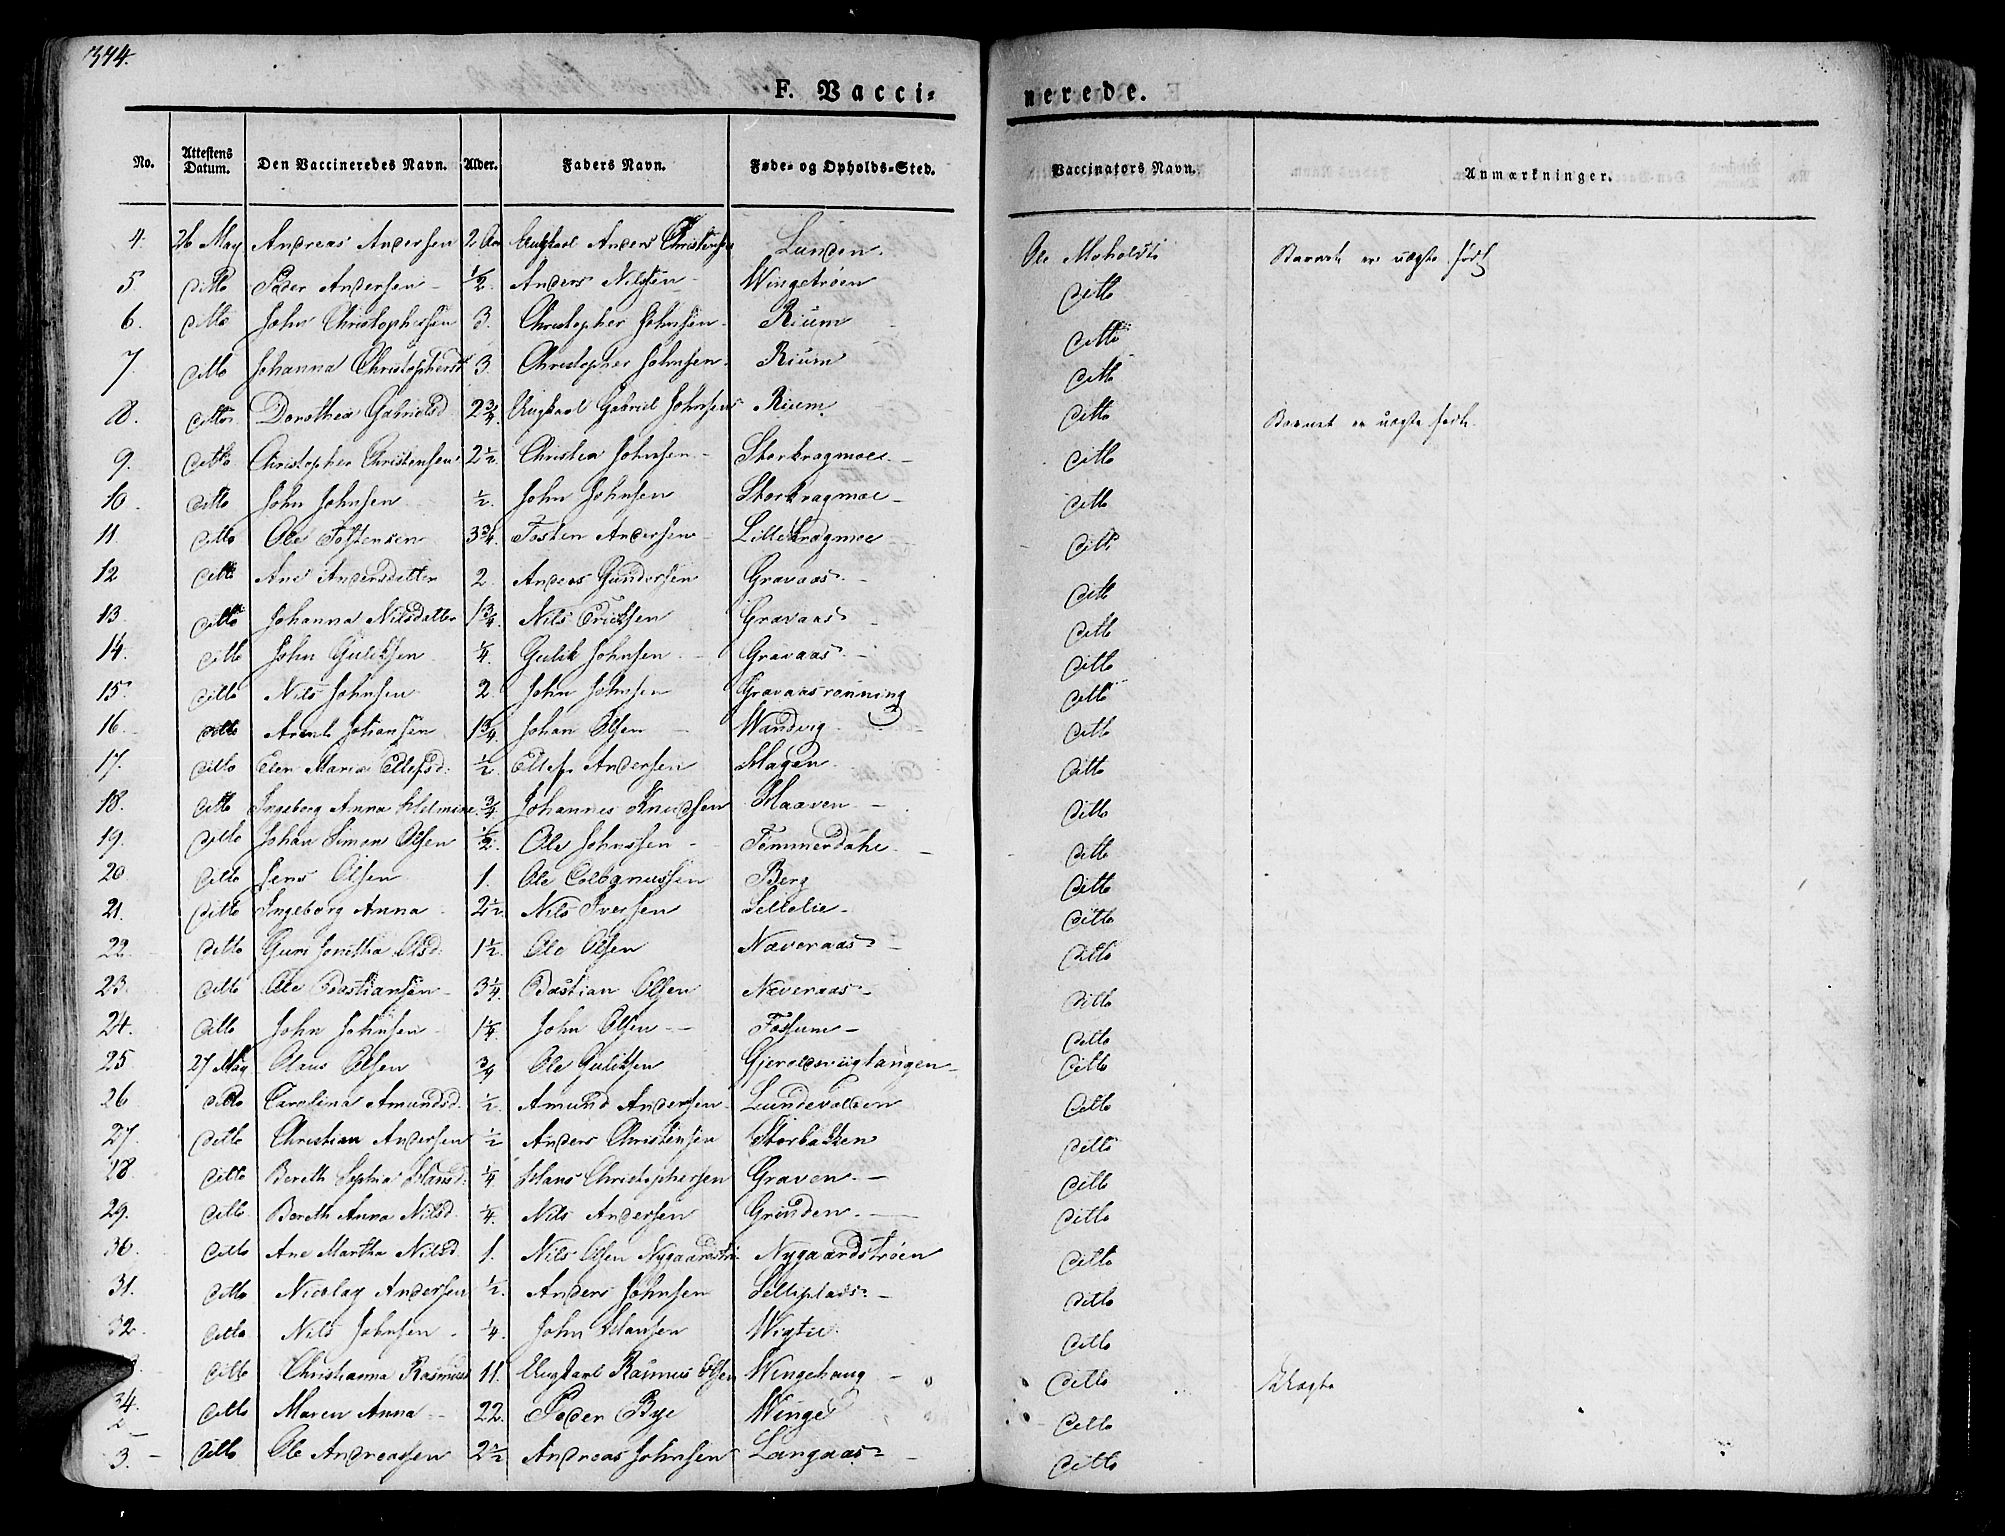 344.
F. Vacci- nerede.
No. Attestens Datum. Den Vaccineredes Navn. Alder. Faders Navn. Føde- og Opholds-Sted. Vaccinators Navn. Anmærkninger.
4. 26 May Andreas Andersen 2 Aar Ungkarl Anders Christensen Lunden. Ole Moholdt Barnet er uægte født
5 ditto Peder Andersen ½ Anders Nilsen Wingetrøen ditto
6. ditto John Christophersen 3. Christopher Johnsen Rium ditto
7. ditto Johanna Christophersd 3. Christopher Johnsen Rium ditto
8. ditto Dorothea Gabrielsd 2¾ Ungkarl Gabriel Johnsen Rium ditto Barnet er uægte født.
9. ditto Christopher Christensen 2½ Christen Johnsen Storkragmoe ditto
10. ditto John Johnsen ½ John Johnsen Storkragmoe ditto
11. ditto Ole Tostensen 3¾ Tosten Andersen Lillekragmoe ditto
12 ditto Ane Andersdatter 2. Anders Gundersen Gravaas ditto
13 ditto Johanna Nilsdatter 1¾ Nils Ericksen Gravaas ditto
14. ditto John Guliksen ¼ Gulik Johnsen Gravaas ditto
15. ditto Nils Johnsen 2 John Johnsen Gravaasrønning ditto
16. ditto Arent Johansen 1¾ Johan Olsen Wandvig ditto
17. ditto Elen Maria Ellefsd. ½ Ellef Andersen Hagen ditto
18. ditto Ingeborg Anna ¾ Johannes Knudsen Haaven ditto
19. ditto Johan Simon Olsen ½ Ole Johnsen Tømmerdahl ditto
20. ditto Jens Olsen 1. Ole Berg ditto
21. ditto Ingeborg Anna 2½ Nils Iversen Lillelie ditto
22. ditto Guri Olsd. 1½ Ole Olsen Næveraas ditto
23. ditto Ole Bastiansen 3¼ Bastian Olsen Næveraas ditto
24. ditto John Johnsen 1¼ John Olsen Fossum ditto
25 27 May Claus Olsen ¾ Ole Guliksen Gjerdesvigtangen ditto
26 ditto Carolina Amundsd. ½ Amund Andersen Lundevolden ditto
27. ditto Christian Andersen ½ Anders Christensen Storbakken ditto
28. ditto Bereth Sophia Hansd. ¼ Hans Christophersen Graven ditto
29. ditto Bereth Anna Nilsd. ¼ Nils Andersen Grinden ditto
30. ditto Ane Martha Nilsd. 1. Nils Olsen Nygaardstrø Nygaardstrøen ditto
31. ditto Nicolay Andersen ½ Anders Johnsen Selliplads ditto
32. ditto Nils Johnsen ¼ John Hansen Wigtil ditto
ditto Christianna Rasmusd 11. Ungkarl Rasmus Olsen Wingehaug ditto Uægte
34. ditto Maren Anna 22. Peder Bye Winge ditto
3. ditto Ole Andreassen 2½ Andreas Johnsen Langaas ditto